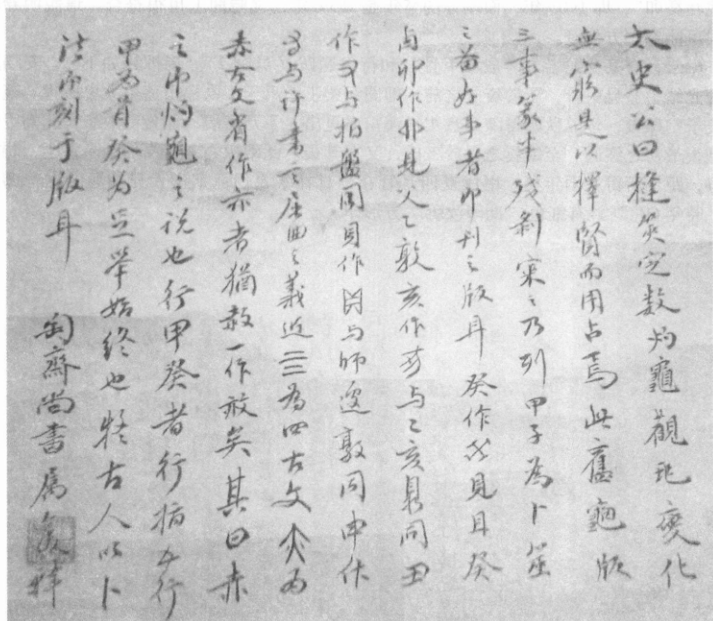 太史公曰摓筴定数灼龜觀兆變化
無窮是以擇賢而用占焉此舊龜版
三事篆半殘剝審之乃列甲子為卜筮
之首好事者即刊之版耳癸作見且癸
卣卯作非見人乙敦亥作与乙亥鼎同丑
作又与招盤同寅作与師遽敦同申作
与計書下屈曲之義近亖為四古文為
赤古文省作亦者猶赦一作矣其曰赤
之灼龜之说也行甲癸者行猶五行
甲為首癸為足舉始終也古人以卜
法而刻于版耳 匋齋尚書屬